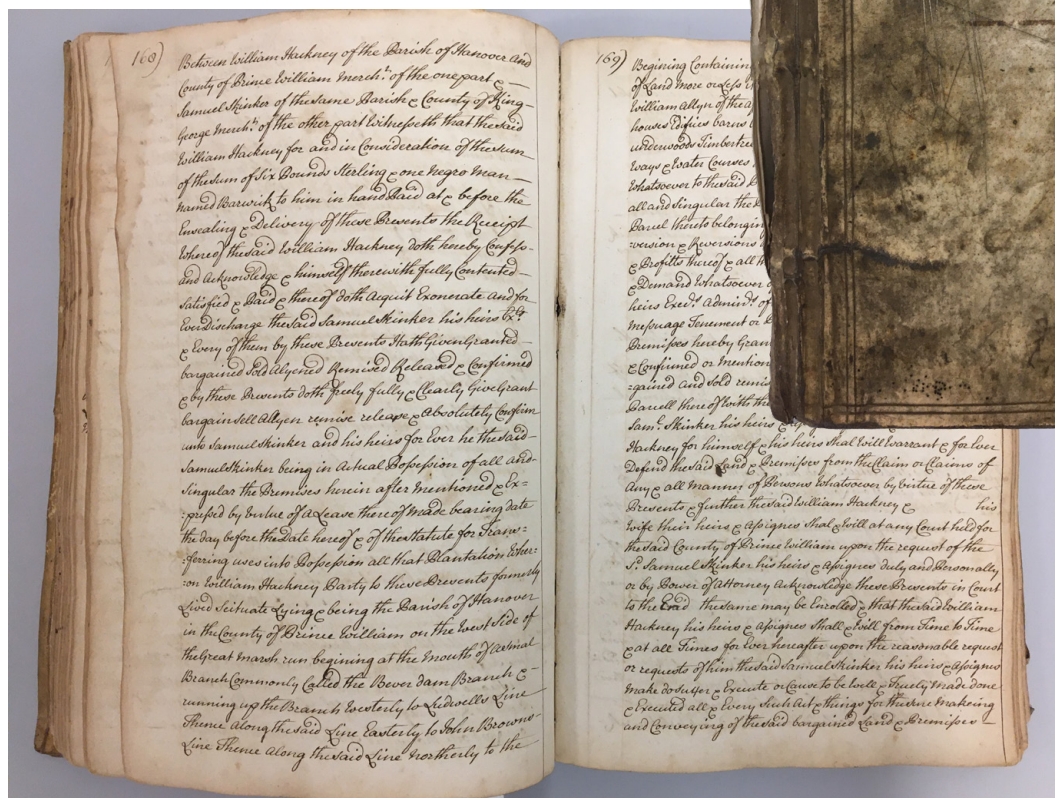 168)
Between William Hackney of the Parish of Hanover and
County of Prince William Merch.t of the one part &
Samuel Skinker of the same Parish & County of King
George Merch.t of the other part Witnesseth that the said
William Hackney for and in Consideration of the sum
of the sum of Six Pounds Sterling & one Negro Man
named Warwick to him in hand Paid at & before the
Ensealing & Delivery of these Presents the Receipt
Whereof the said William Hackney doth hereby Confess
and Acknowledge & himself therewith fully Contented
Satisfied & Paid & thereof doth Acquit Exonerate and for
Ever Discharge the said Samuel Skinker his heirs Ex.rs
& Every of them by these Presents Hath Given Granted
bargained Sold Alyened Remised Released & Confirmed
& by these Presents doth freely fully & Clearly Give Grant
bargain Sell Alyen remise release & Absolutely Confirm
unto Samuel Skinker and his heirs for Ever he the said
Samuel Skinker being in Actual Possession of all and
Singular the Premises herein after Mentioned & Ex=
=pressed by Virtue of a Lease thereof made bearing date
the day before the Date hereof & of the Statute for Trans=
=ferring uses into Possession all that Plantation Wher=
=on William Hackney Party to these Presents formerly
Lived Scituate Lying & being the Parish of Hanover
in the County of Prince William on the West Side of
the Great Marsh run begining at the Mouth of a Smal
Branch Commonly Called the Bever dam Branch &
running up the Branch Westerly to Ludwells Line
Thence along the said Line Easterly to John Browns
Line Thence along the said Line Northerly to the
169)
Begining Containing
of Land more or less
William Allyn of the
houses Edifices barns
underwoods Timbertrees
Ways & Water Courses
Whatsoever to the said
all and Singular the
Parcel thereto belonging
=version & Reversions
& Profitts thereof & all
& Demand Whatsoever
heirs Exec.rs Admin.rs of
Messuage Tenement or
Premisses hereby Gran
& Confirmed or Mention
=gained and Sold remis
Parcell thereof with the
Sam.l Skinker his heirs
Hackney for himself & his heirs Shal & Will Warrant & for Ever
Defend the said Land & Premisses from the Claim or Claims of
Any & all Manner of Persons Whatsoever by virtue of these
Presents & further the said William Hackney & his
Wife their heirs & Assignes Shal & Will at any Court held for
the said County of Prince William upon the request of the
S.d Samuel Skinker his heirs & Assignes Duly and Personally
or by Power of Attorney Acknowledge these Presents in Court
to the End the same may be Enrolled & that the said William
Hackney his heirs & Assignes Shall & Will from Time to Time
& at all Times for Ever hereafter upon the reasonable request
or requests of him the said Samuel Skinker his heirs & Assignes
make do Suffer & Execute or Cause to be Well & Truely Made done
& Executed all & Every Such Act & things for the sure Makeing
and Conveying of the said bargained Land & Premisses